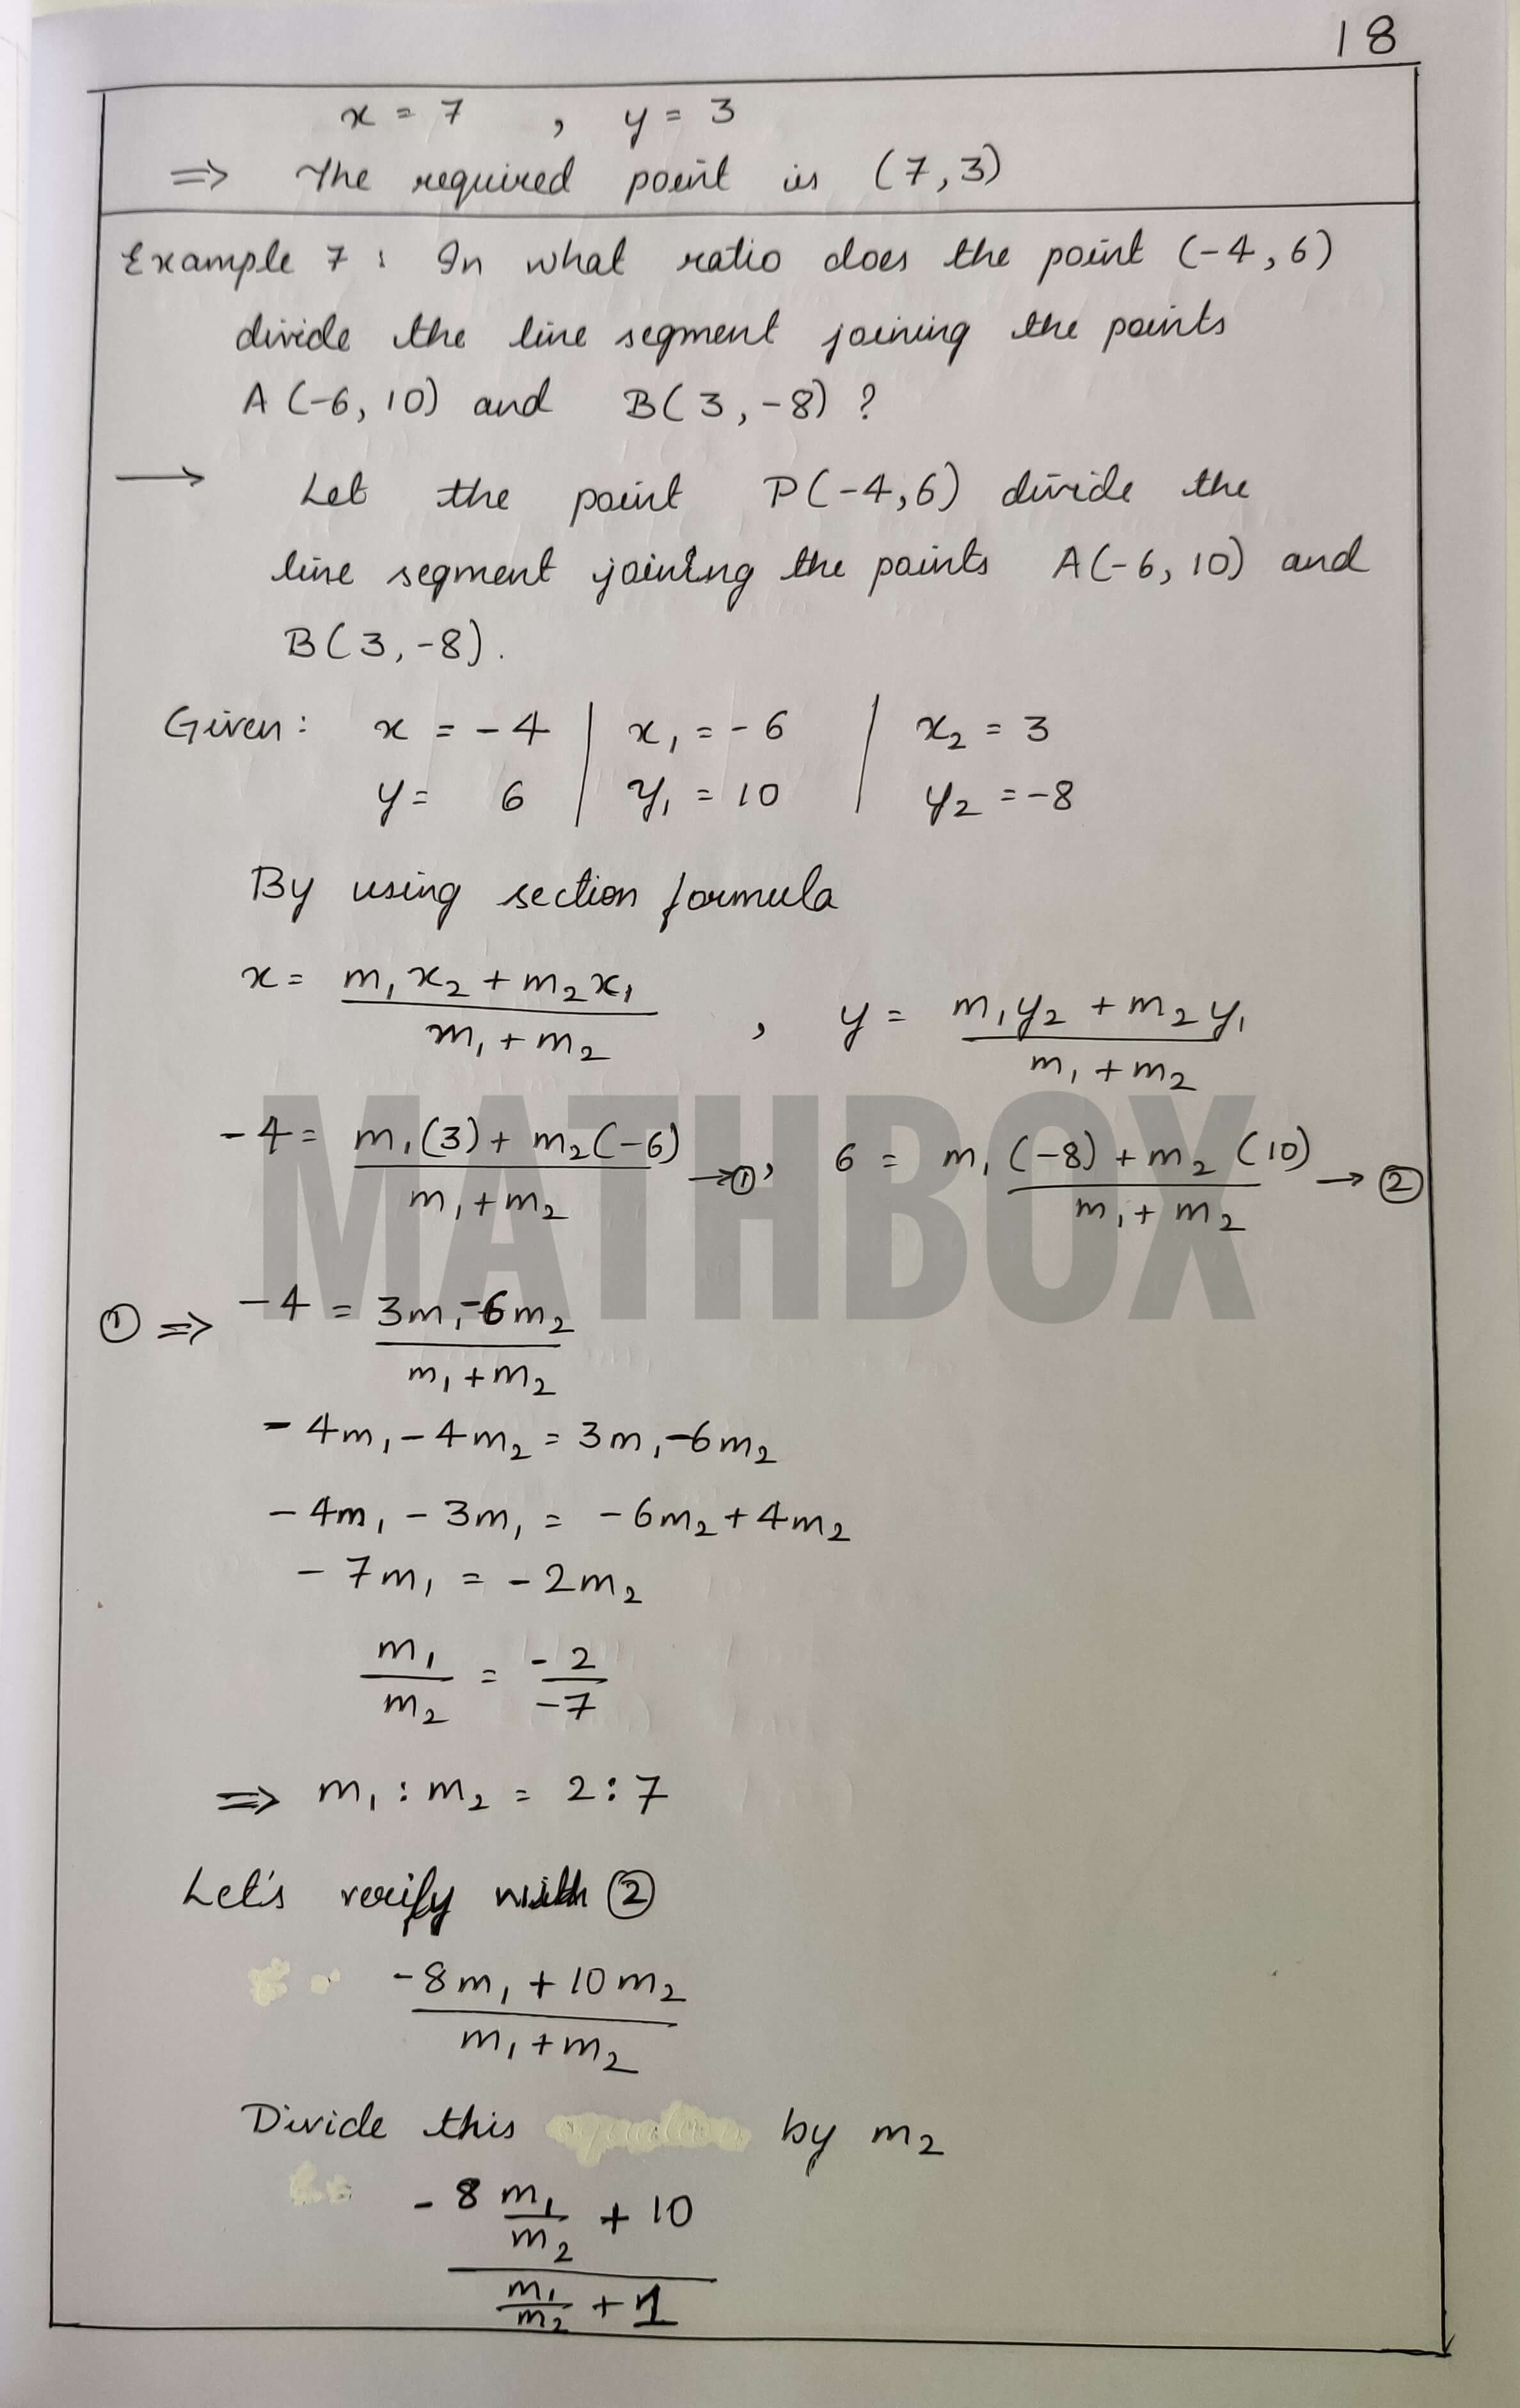 18
x = 7 , y = 3
⇒ The required point is (7,3)
Example 7 : In what ratio does the point (-4,6)
divide the line segment joining the points
A (-6, 10) and B(3, -8) ?
→ Let the point P(-4,6) divide the
line segment joining the points A(-6, 10) and
B(3,-8).
Given: x = -4 | x₁ = -6 | x₂ = 3
y = 6 | y₁ = 10 | y₂ = -8
By using section formula
x = (m₁x₂ + m₂x₁)/(m₁ + m₂) , y = (m₁y₂ + m₂y₁)/(m₁ + m₂)
MATHBOX
-4 = (m₁(3) + m₂(-6))/(m₁ + m₂) → ①, 6 = (m₁(-8) + m₂(10))/(m₁ + m₂) → ②
① ⇒ -4 = (3m₁-6m₂)/(m₁ + m₂)
-4m₁ - 4m₂ = 3m₁-6m₂
-4m₁ - 3m₁ = -6m₂ + 4m₂
-7m₁ = -2m₂
m₁/m₂ = -2/-7
⇒ m₁ : m₂ = 2 : 7
Let's verify with ②
(-8m₁ + 10m₂)/(m₁ + m₂)
Divide this by m₂
(-8 m₁/m₂ + 10)/(m₁/m₂ + 1)